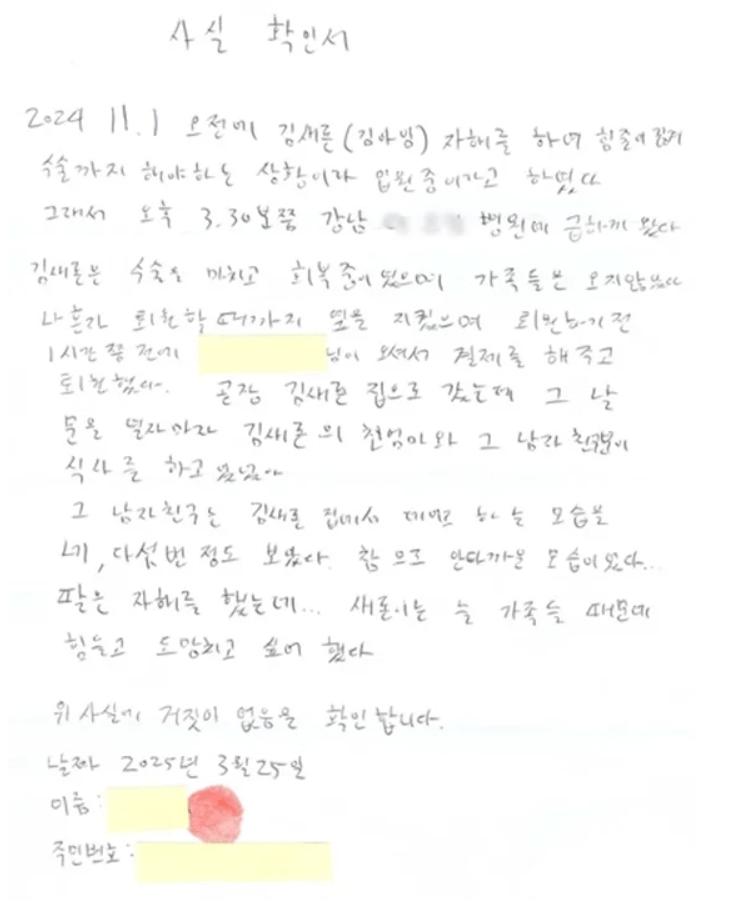 사실 확인서
2024 11.1 오전에 김새론(김아임) 자해를 하여 힘줄이 끊겨
수술까지 해야하는 상황이라 입원중이라고 하였다
그래서 오후 3.30분쯤 강남 병원에 급하게 왔다
김새론은 수술을 마치고 회복중이었으며 가족들은 오지않았다
나 혼자 퇴원할때까지 옆을 지켰으며 퇴원하기전
1시간쯤 전에 님이 오셔서 결제를 해주고
퇴원했다. 곧장 김새론 집으로 갔는데 그 날
문을 열자마자 김새론의 친엄마와 그 남자친구분이
식사를 하고 있었다
그 남자친구는 김새론 집에서 데모 하는 모습을
네,다섯번 정도 보았다. 참으로 안타까운 모습이였다...
팔은 자해를 했는데... 새론이는 늘 가족들 때문에
힘들고 도망치고 싶어 했다
위 사실에 거짓이 없음을 확인합니다.
날짜 2025년 3월25일
이름:
주민번호: